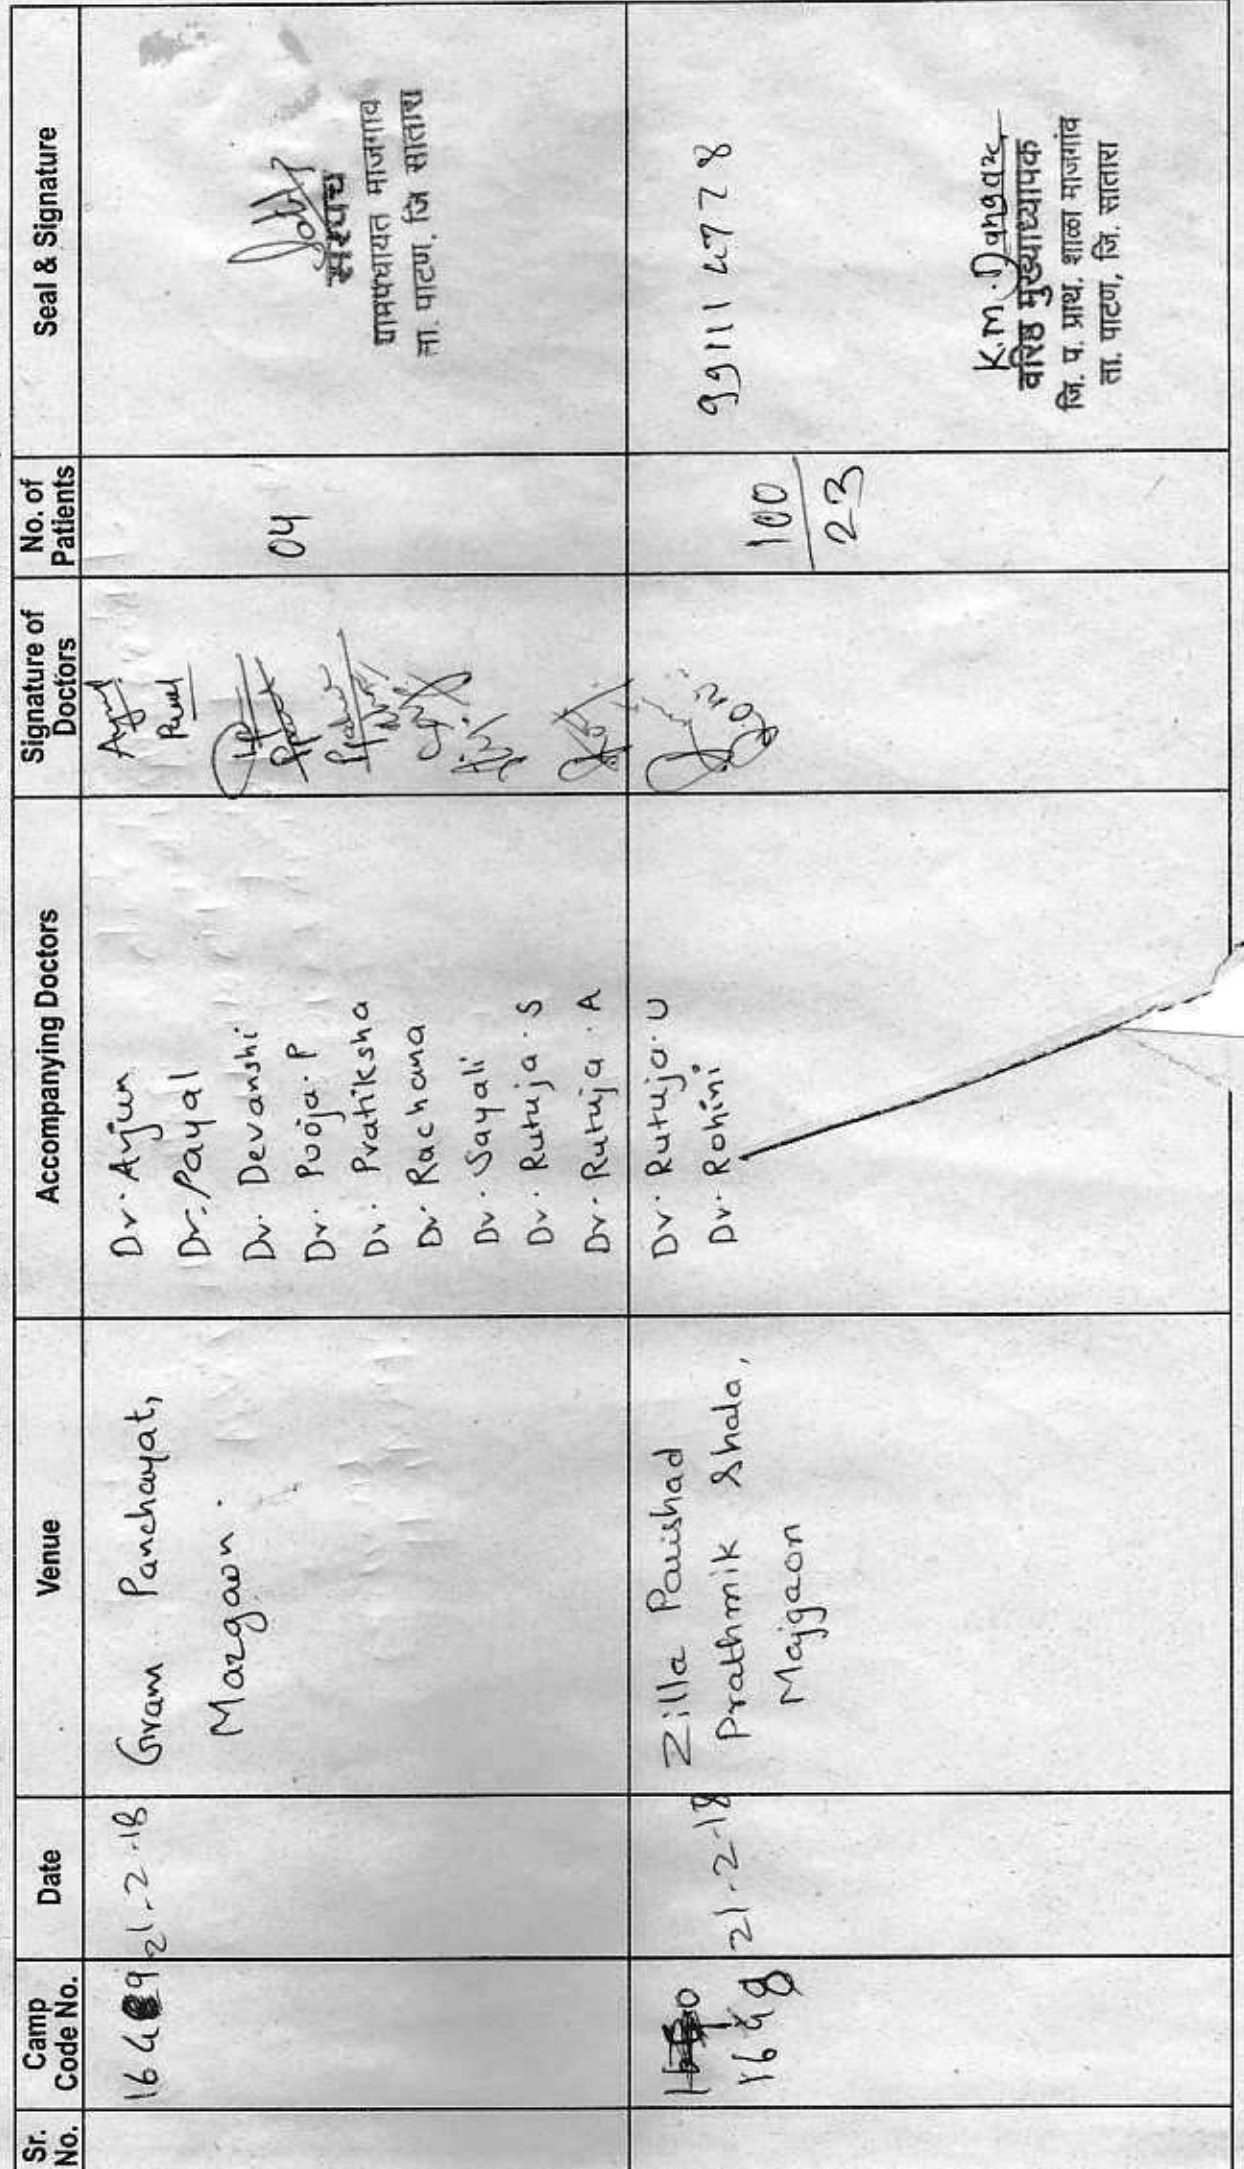 Sr. No.
Camp Code No.
Date
Venue
Accompanying Doctors
Signature of Doctors
No. of Patients
Seal & Signature
21-2-18
Gram Panchayat,
Mazgaon.
Dr. Arjun
Dr. Payal
Dr. Devanshi
Dr. Pooja. P
Dr. Pratiksha
Dr. Rachana
Dr. Sayali
Dr. Rutuja. S
Dr. Rutuja. A
04
सरपंच
ग्रामपंचायत माजगाव
ता. पाटण, जि सातारा
1648
21-2-18
Zilla Parishad
Prathmik Shala,
Majgaon
Dr. Rutuja. U
Dr. Rohini
100
23
K.M.Dangare
वरिष्ठ मुख्याध्यापक
जि. प. प्राथ. शाळा माजगांव
ता. पाटण, जि. सातारा